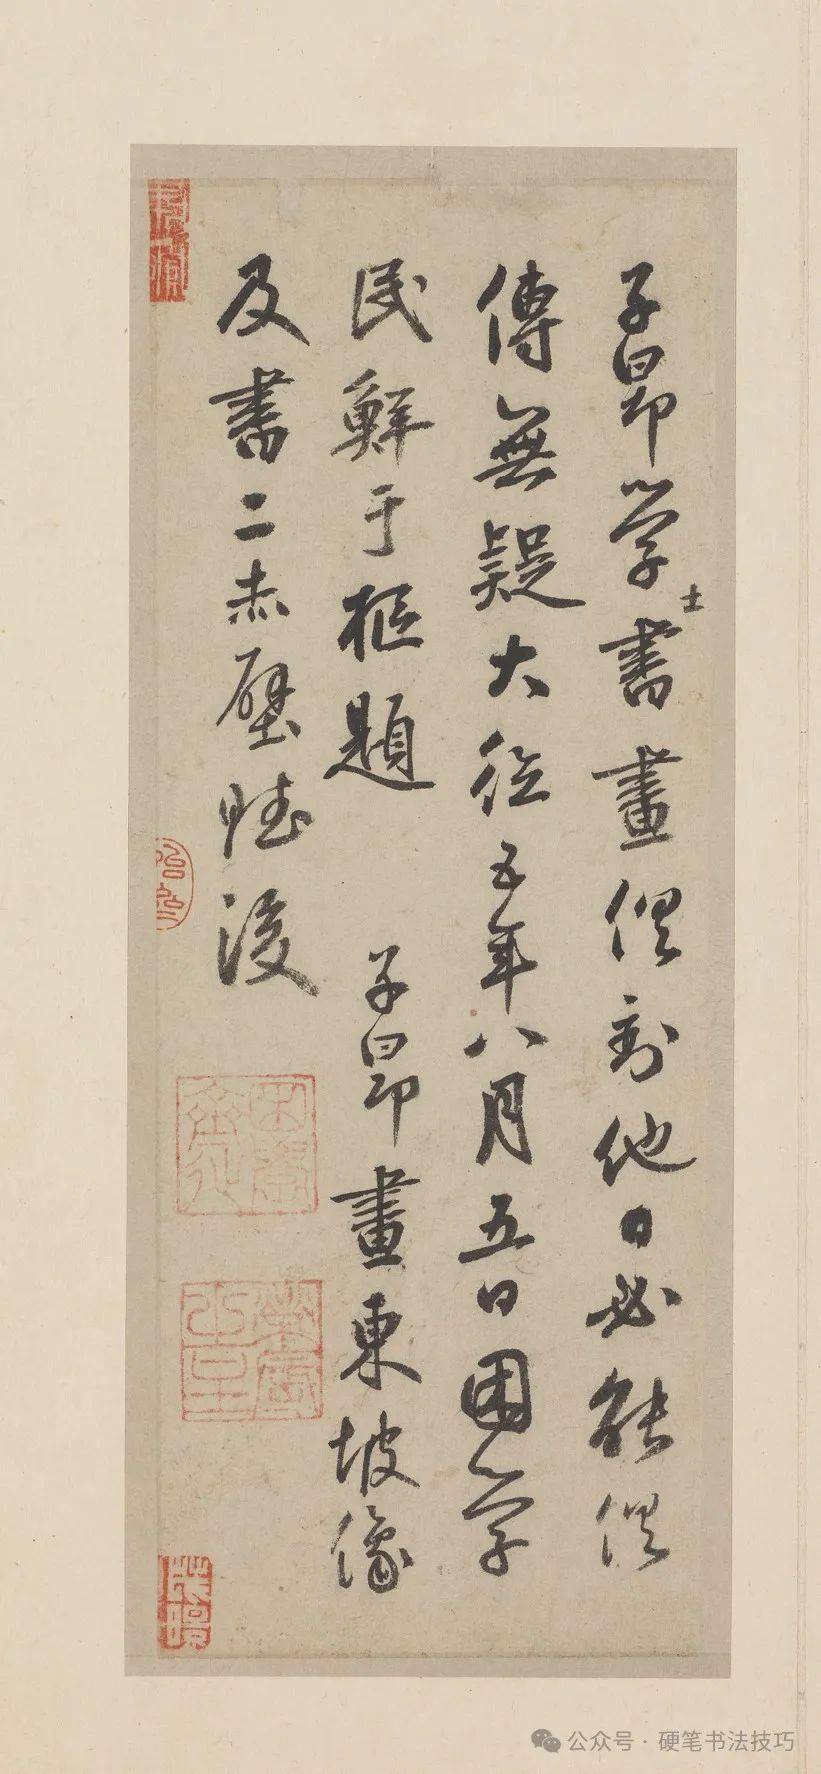 子昂學士書畫俱到他日必能俱
傳無疑大德五年八月五日困學
民鮮于樞題 子昂畫東坡像
及書二赤壁賦後
公众号·硬笔书法技巧